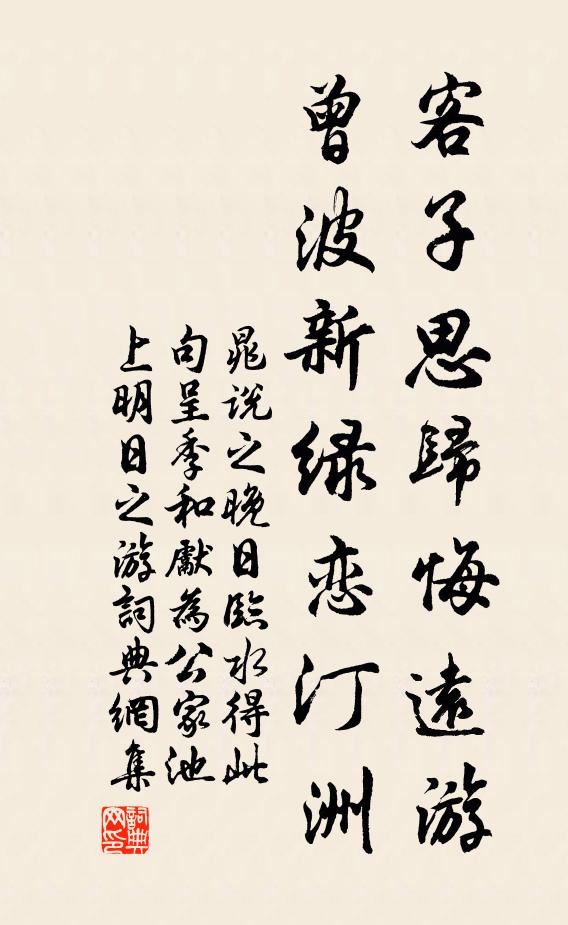 客子思歸悔遠游
曾波新绿恋汀洲
晁说之晚日臨水得此
句呈季和獻為公家池
上明日之游詞典網集
詞典网印